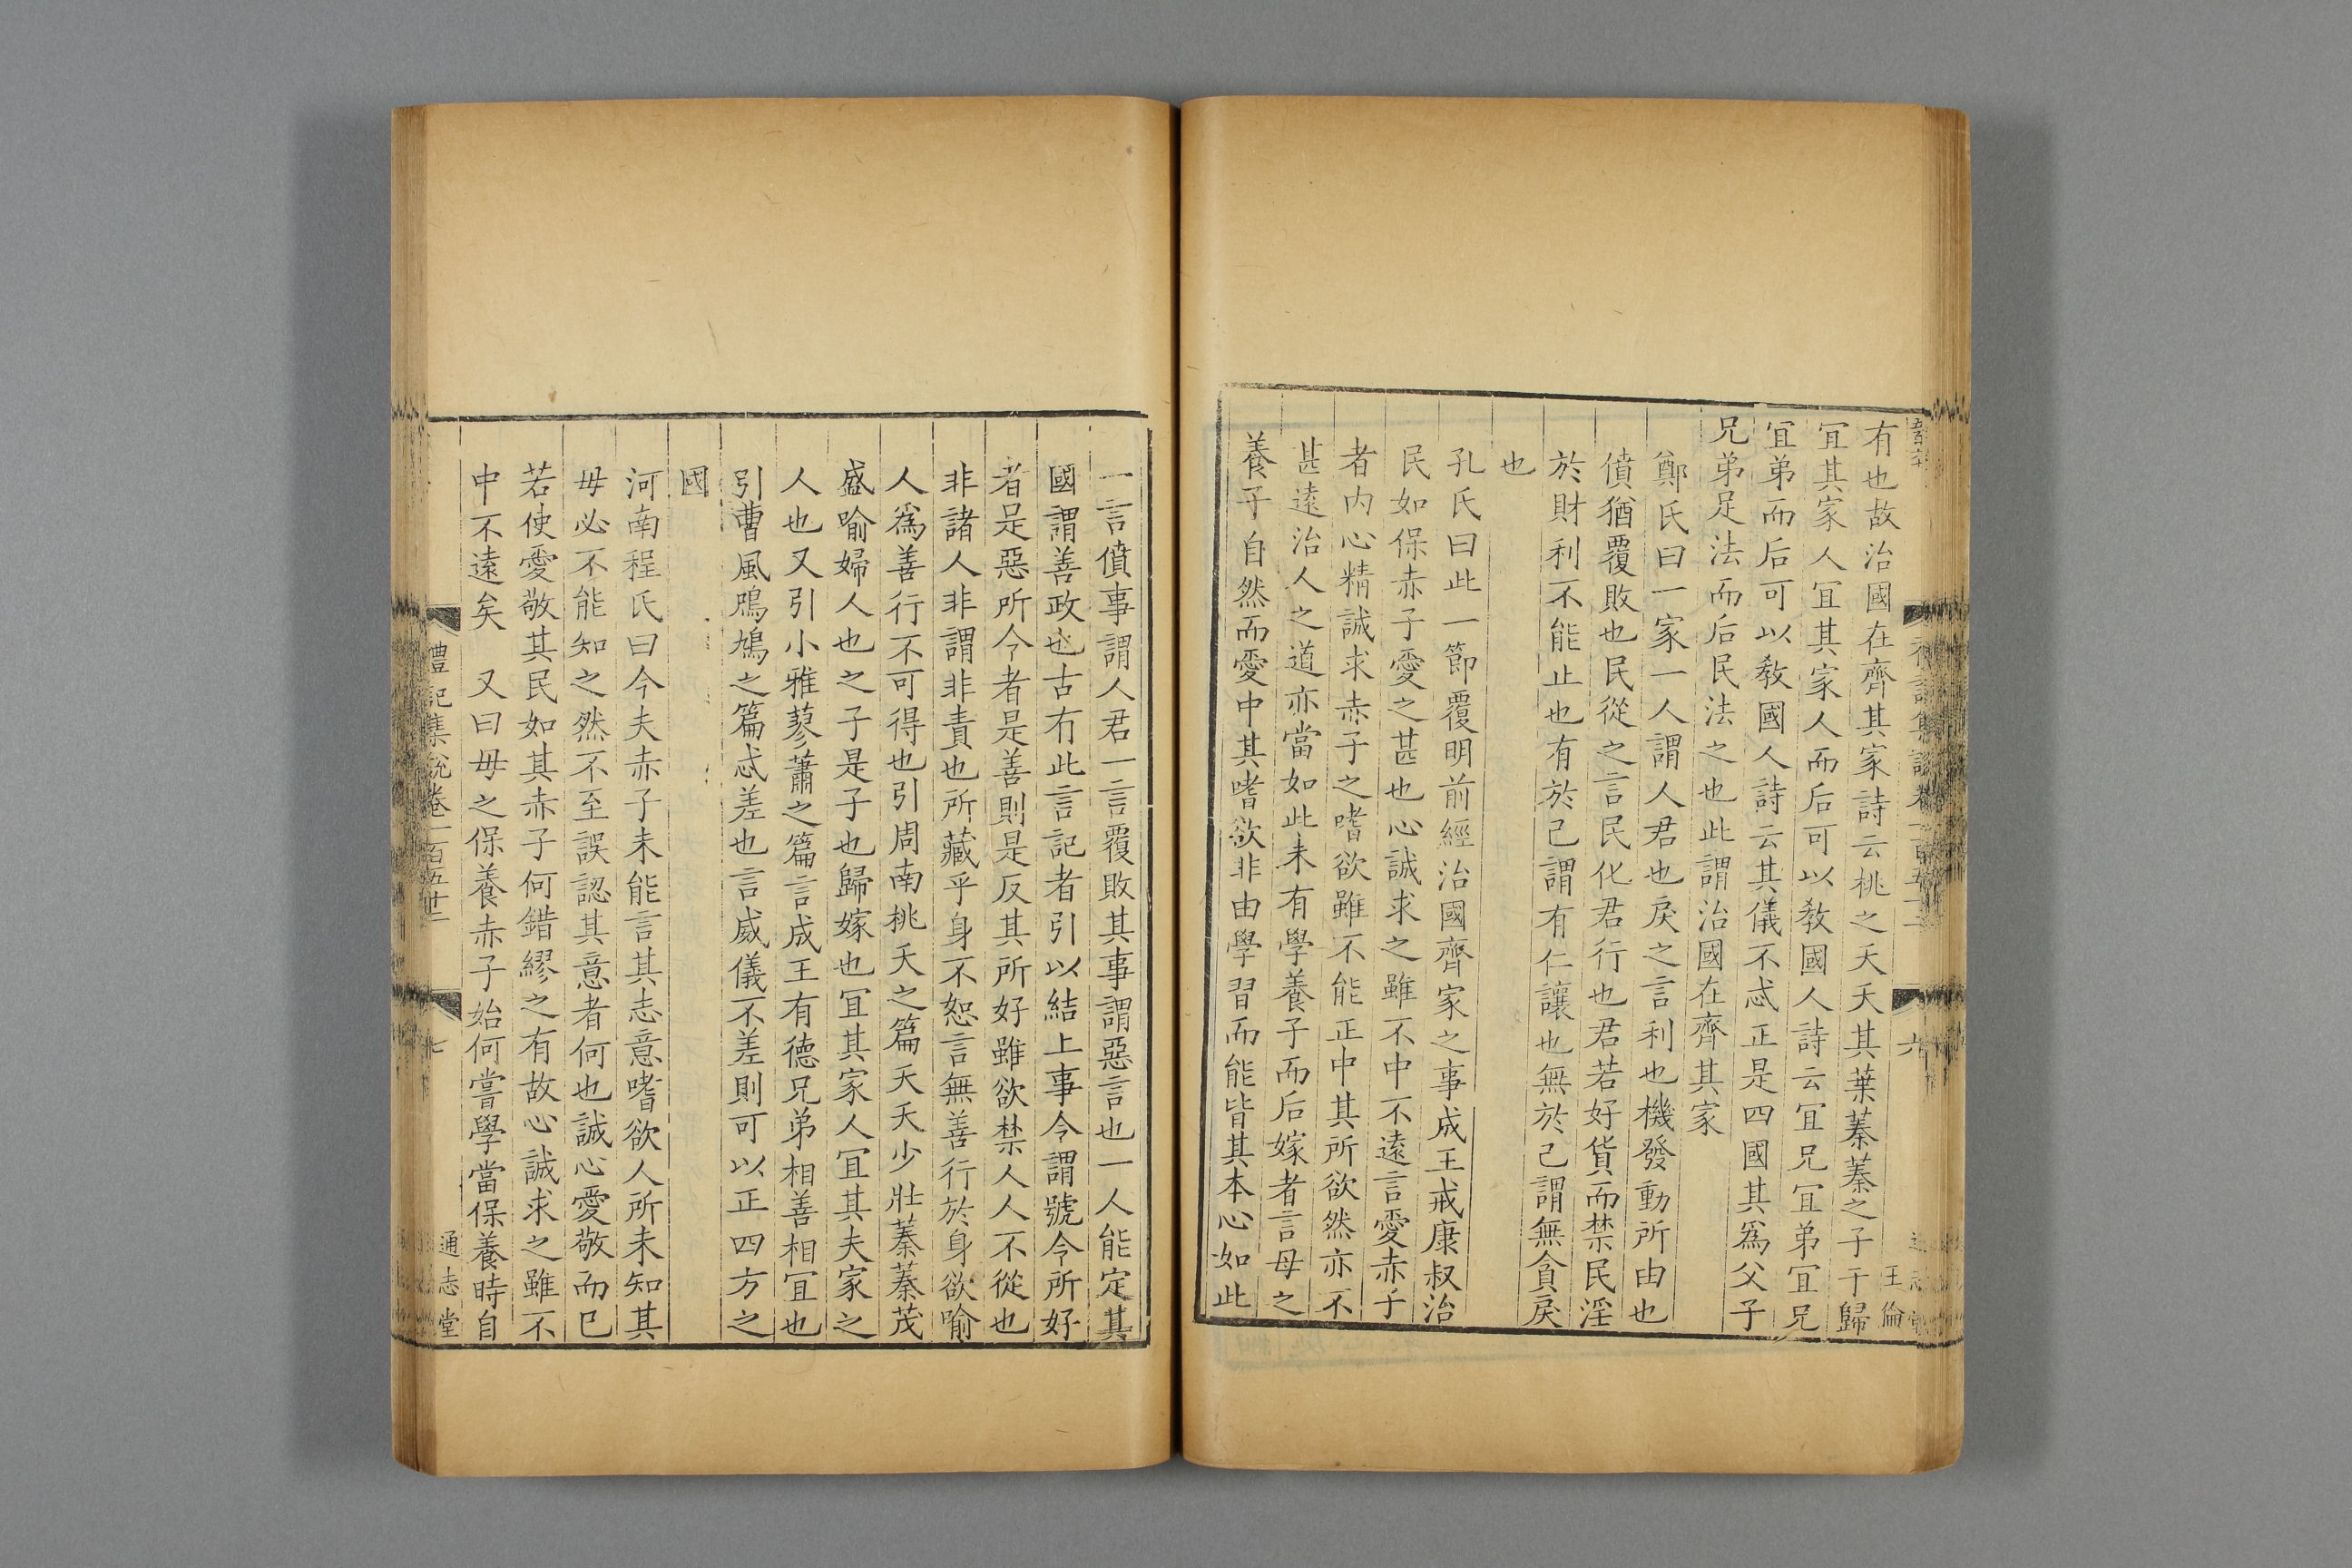 有也故治國在齊其家詩云桃之夭夭其葉蓁蓁之子于歸
宜其家人宜其家人而后可以敎國人詩云宜兄宜弟宜兄
宜弟而后可以敎國人詩云其儀不忒正是四國其爲父子
兄弟足法而后民法之也此謂治國在齊其家
鄭氏曰一家一人謂人君也戾之言利也機發動所由也
僨猶覆敗也民從之言民化君行也君若好貨而禁民淫
於財利不能止也有於己謂有仁讓也無於己謂無貪戾
也
孔氏曰此一節覆明前經治國齊家之事成王戒康叔治
民如保赤子愛之甚也心誠求之雖不中不遠言愛赤子
者内心精誠求赤子之嗜欲雖不能正中其所欲然亦不
甚遠治人之道亦當如此未有學養子而后嫁者言母之
養子自然而愛中其嗜欲非由學習而能皆其本心如此
王倫
六
一言僨事謂人君一言覆敗其事謂惡言也一人能定其
國謂善政也古有此言記者引以結上事今謂號令所好
者是惡所令者是善則是反其所好雖欲禁人人不從也
非諸人非謂非責也所藏乎身不恕言無善行於身欲喻
人爲善行不可得也引周南桃夭之篇夭夭少壯蓁蓁茂
盛喻婦人也之子是子也歸嫁也宜其家人宜其夫家之
人也又引小雅蓼蕭之篇言成王有德兄弟相善相宜也
引曹風鳲鳩之篇忒差也言威儀不差則可以正四方之
國
河南程氏曰今夫赤子未能言其志意嗜欲人所未知其
母必不能知之然不至誤認其意者何也誠心愛敬而已
若使愛敬其民如其赤子何錯繆之有故心誠求之雖不
中不遠矣　又曰母之保養赤子始何嘗學當保養時自
禮記集說卷一百五十二
七
通志堂